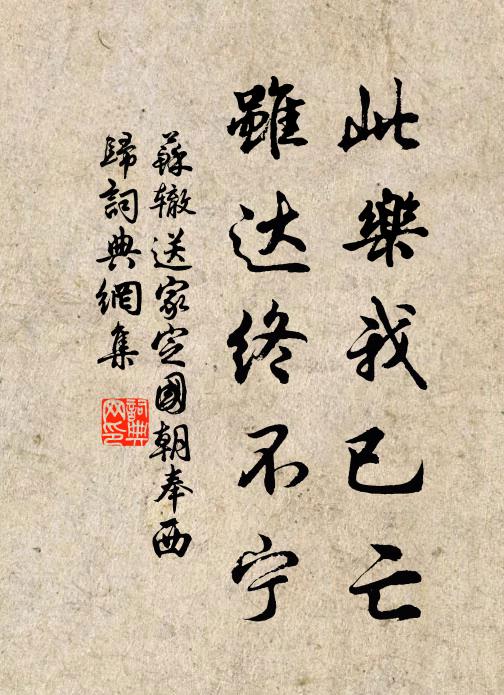 此樂我已亡
雖达終不宁
蘇辙送家定國朝奉西
歸詞典網集
詞典
网印